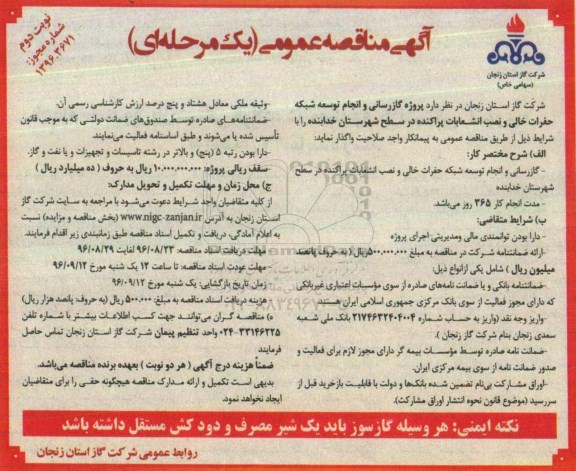 آگهی مناقصه عمومی (یک مرحله‌ای)
نوبت دوم
شماره مجوز:
۱۳۹۶.۳۶۷۱
شرکت گاز استان زنجان
(سهامی خاص)
شرکت گاز استان زنجان در نظر دارد پروژه گازرسانی و انجام توسعه شبکه
حفرات خالی و نصب انشعابات پراکنده در سطح شهرستان خدابنده را با
شرایط ذیل از طریق مناقصه عمومی به پیمانکار واجد صلاحیت واگذار نماید:
الف) شرح مختصر کار:
- گازرسانی و انجام توسعه شبکه حفرات خالی و نصب انشعابات پراکنده در سطح
شهرستان خدابنده
- مدت انجام کار ۳۶۵ روز می‌باشد.
ب) شرایط متقاضی:
- دارا بودن توانمندی مالی ومدیریتی اجرای پروژه
-ارائه ضمانتنامه شرکت در مناقصه به مبلغ ۵۰۰.۰۰۰.۰۰۰ریال (به حروف پانصد
میلیون ریال ) شامل یکی ازانواع ذیل:
-ضمانتنامه بانکی و یا ضمانت نامه‌های صادره از سوی مؤسسات اعتباری غیربانکی
که دارای مجوز فعالیت از سوی بانک مرکزی جمهوری اسلامی ایران هستند
-واریز وجه نقد (واریز به حساب شماره ۲۱۷۴۶۳۲۴۰۴۰۰۴ بانک ملی شعبه
سعدی زنجان بنام شرکت گاز زنجان ).
-ضمانت نامه صادره توسط مؤسسات بیمه گر دارای مجوز لازم برای فعالیت و
صدور ضمانت نامه از سوی بیمه مرکزی ایران.
-اوراق مشارکت بی‌نام تضمین شده بانک‌ها و دولت با قابلیت بازخرید قبل از
سررسید (موضوع قانون نحوه انتشار اوراق مشارکت).
-وثیقه ملکی معادل هشتاد و پنج درصد ارزش کارشناسی رسمی آن.
-ضمانتنامه‌های صادره توسط صندوق‌های ضمانت دولتی که به موجب قانون
تأسیس شده یا می‌شوند و طبق اساسنامه فعالیت می‌نمایند.
-دارا بودن رتبه ۵ (پنج) و بالاتر در رشته تاسیسات و تجهیزات و یا نفت و گاز.
-سقف ریالی پروژه: ۱۰.۰۰۰.۰۰۰.۰۰۰ ریال به حروف ( ده میلیارد ریال )
ج) محل زمان و مهلت تکمیل و تحویل مدارک:
از کلیه متقاضیان واجد شرایط دعوت می‌شود با مراجعه به سایت شرکت گاز
استان زنجان به آدرس www.nigc-zanjan.ir (بخش مناقصه و مزایده) نسبت
به اعلام آمادگی، دریافت و تکمیل اسناد مناقصه طبق زمانبندی زیر اقدام فرمایند.
مهلت دریافت اسناد مناقصه: ۹۶/۰۸/۲۳ لغایت ۹۶/۰۸/۲۹
مهلت عودت اسناد مناقصه: تا ساعت ۱۲ یک شنبه مورخ ۹۶/۰۹/۱۲
زمان تاریخ بازگشایی: یک شنبه مورخ ۹۶/۰۹/۱۲
هزینه دریافت اسناد مناقصه به مبلغ: ۵۰۰.۰۰۰ ریال (به حروف: پانصد هزار ریال)
ه) مناقصه گران می‌توانند جهت کسب اطلاعات بیشتر با شماره تلفن
۰۲۴-۳۳۱۴۶۳۲۵ واحد تنظیم پیمان شرکت گاز استان زنجان تماس حاصل
فرمایند
ضمناً هزینه درج آگهی ( هر دو نوبت ) بعهده برنده مناقصه می‌باشد.
بدیهی است تکمیل و ارائه مدارک مناقصه هیچگونه حقی را برای متقاضیان
ایجاد نخواهد نمود.
نکته ایمنی: هر وسیله گازسوز باید یک شیر مصرف و دود کش مستقل داشته باشد
روابط عمومی شرکت گاز استان زنجان